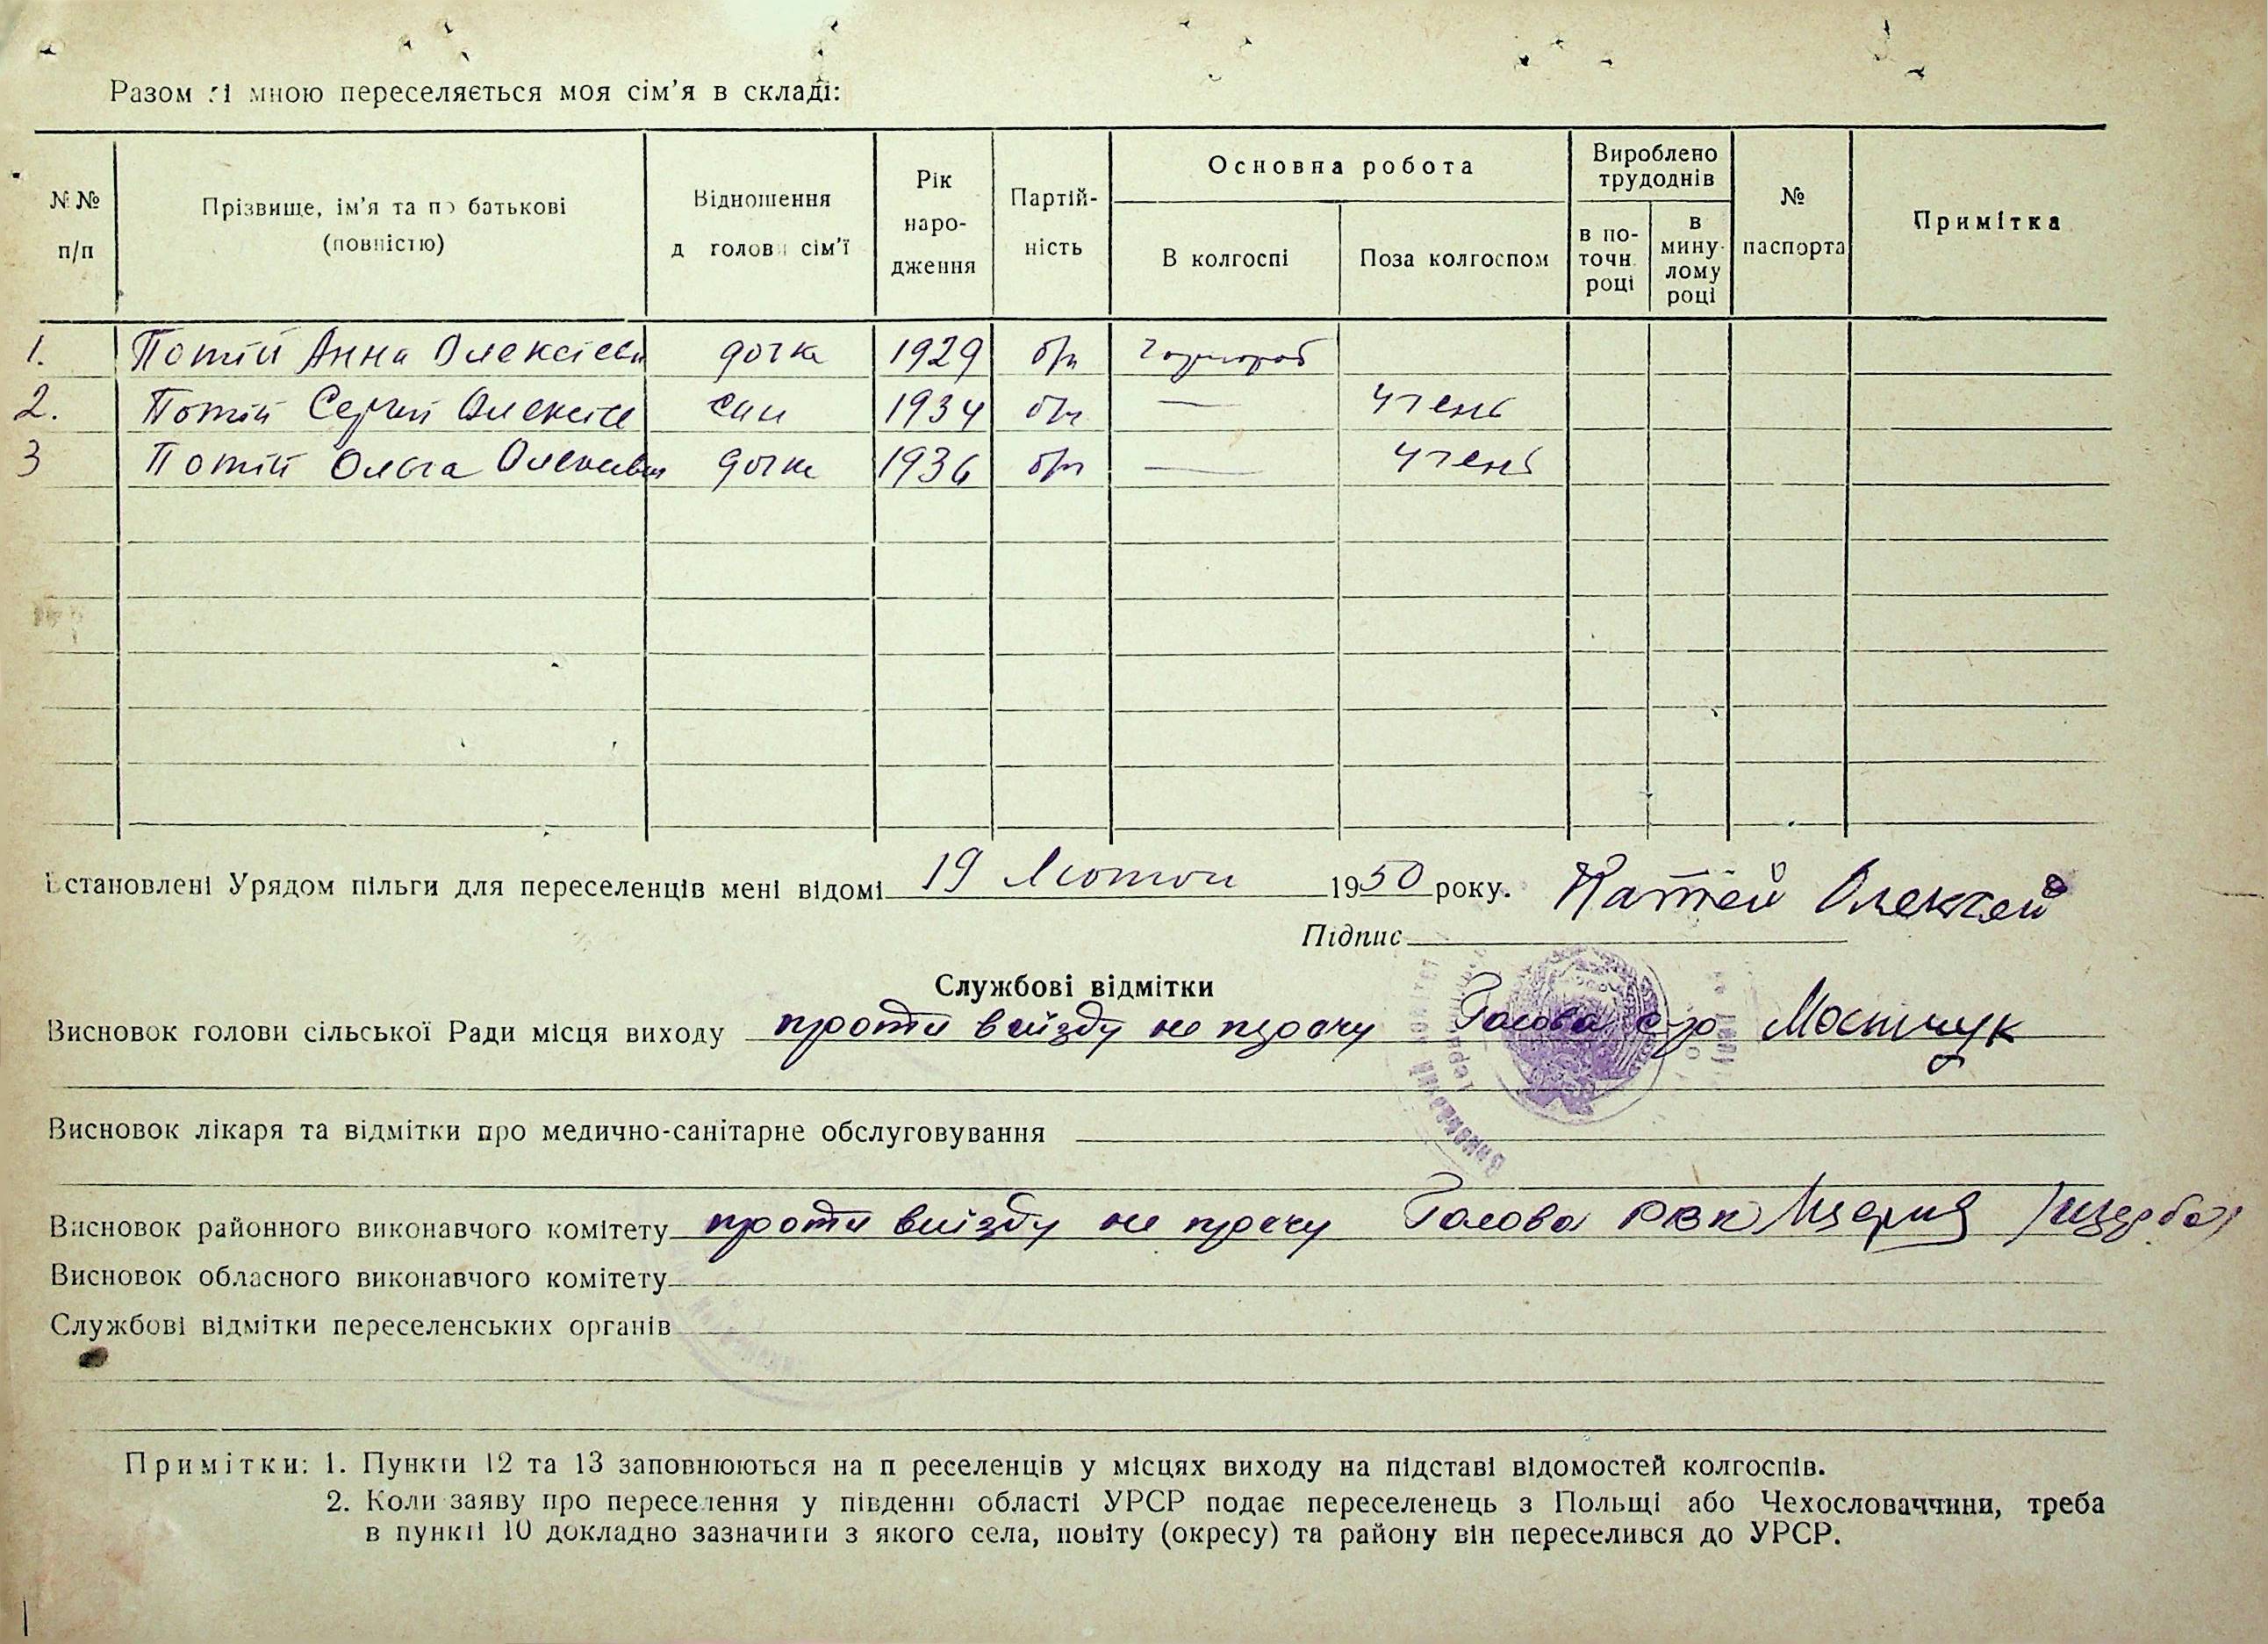 Разом зі мною переселяється моя сім'я в складі:
№№ п/п
Прізвище, ім'я та по батькові (повністю)
Відношення д голови сім'ї
Рік народження
Партійність
Основна робота
В колгоспі
Поза колгоспом
Вироблено трудоднів
в поточн. році
в минулому році
№ паспорта
Примітка
1. Потій Анна Олексієвн дочка 1929 б/п
2. Потій Сергій Олексіє син 1934 б/п — учень
3 Потій Ольга Олексієвн дочка 1936 б/п — учень
Встановлені Урядом пільги для переселенців мені відомі 19 Лютого 1950 року.
Потей Олексей
Підпис
Службові відмітки
Висновок голови сільської Ради місця виходу проти виїзду не прочу Голова с/р Мостчук
Висновок лікаря та відмітки про медично-санітарне обслуговування
Висновок районного виконавчого комітету проти виїзду не прочу Голова РВК /Щерба/
Висновок обласного виконавчого комітету
Службові відмітки переселенських органів
Примітки: 1. Пункти 12 та 13 заповнюються на п реселенців у місцях виходу на підставі відомостей колгоспів.
2. Коли заяву про переселення у південні області УРСР подає переселенець з Польщі або Чехословаччини, треба
в пункті 10 докладно зазначити з якого села, повіту (окресу) та району він переселився до УРСР.